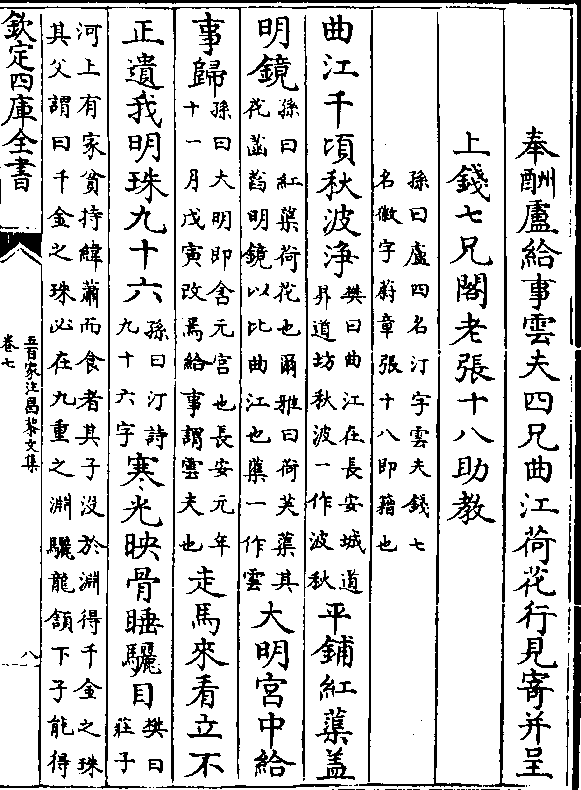 奉酬盧給事雲夫四兄曲江荷花行見寄并呈
上錢七兄閣老張十八助教
孫曰盧四名汀字雲夫錢七
名徽字蔚章張十八即籍也
曲江千頃秋波浄
樊曰曲江在長安城道
昇道坊秋波一作波秋
平鋪紅蕖盖
明鏡
孫曰紅蕖荷花也爾雅曰荷芙蕖其
花菡萏明鏡以比曲江也蕖一作雲
大明宫中給
事歸
孫曰大明即含元宫也長安元年
十一月戊寅改焉給事謂雲夫也
走馬來看立不
正遺我明珠九十六
孫曰汀詩
九十六字
寒光映骨睡驪目
樊曰
莊子
河上有家貧持緯蕭而食者其子没於淵得千金之珠
其父謂曰千金之珠必在九重之淵驪龍頷下子能得
欽定四庫全書
五百家注昌黎文集
卷七
八